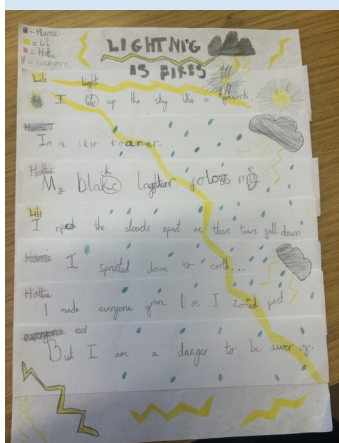 = Harrie
= Lili
= Hattie
= everyone
LIGHTNIG
IS FIRES
Lili light
I up the sky like a firework.
Harrie
I'm a sky tearer..
Hattie
My follows me
Lili
I the clouds apart as there tears fall down
Harrie I sprinted down to earth...
Hattie
I made everyone grin as I zoomed past
everyone
But I am a danger to be